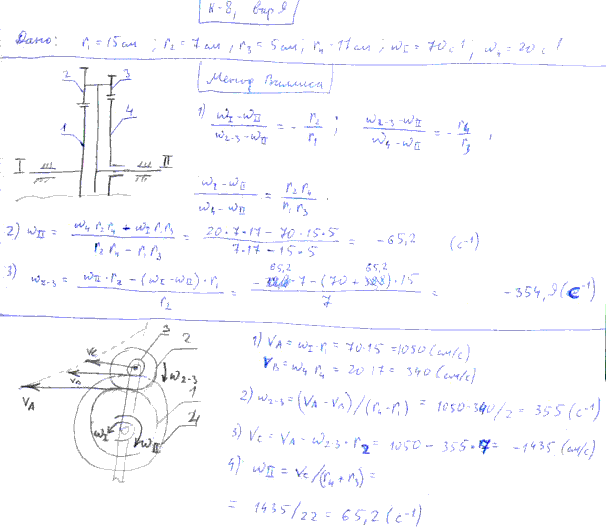 К-8, вар 9
Дано: r₁=15см ; r₂=7см ; r₃=5см ; r₄=17см ; ω_I=70c⁻¹ ; ω₄=20c⁻¹
Метод Виллиса
2 3
4
1
I II
1) (ω_I-ω_II)/(ω₂₋₃-ω_II) = -r₂/r₁ ; (ω₂₋₃-ω_II)/(ω₄-ω_II) = -r₄/r₃ ,
(ω_I-ω_II)/(ω₄-ω_II) = r₂r₄/r₁r₃ .
2) ω_II = (ω₄r₂r₄ - ω_I r₁r₃)/(r₂r₄ - r₁r₃) = (20·7·17 - 70·15·5)/(7·17 - 15·5) = -65,2 (c⁻¹)
3) ω₂₋₃ = (ω_II·r₂ - (ω_I-ω_II)·r₁)/r₂ = (-65,2·7 - (70+65,2)·15)/7 = -354,9 (c⁻¹)
3 2
V_C
ω₂₋₃
V_A
1
4
ω_I ω_II
1) V_A = ω_I·r₁ = 70·15 = 1050 (см/с)
V_B = ω₄ r₄ = 20·17 = 340 (см/с)
2) ω₂₋₃ = (V_A - V_B)/(r₄-r₁) = 1050-340/2 = 355 (c⁻¹)
3) V_C = V_A - ω₂₋₃·r₂ = 1050 - 355·7 = -1435 (см/с)
4) ω_II = V_C/(r₄+r₃) =
= 1435/22 = 65,2 (c⁻¹)